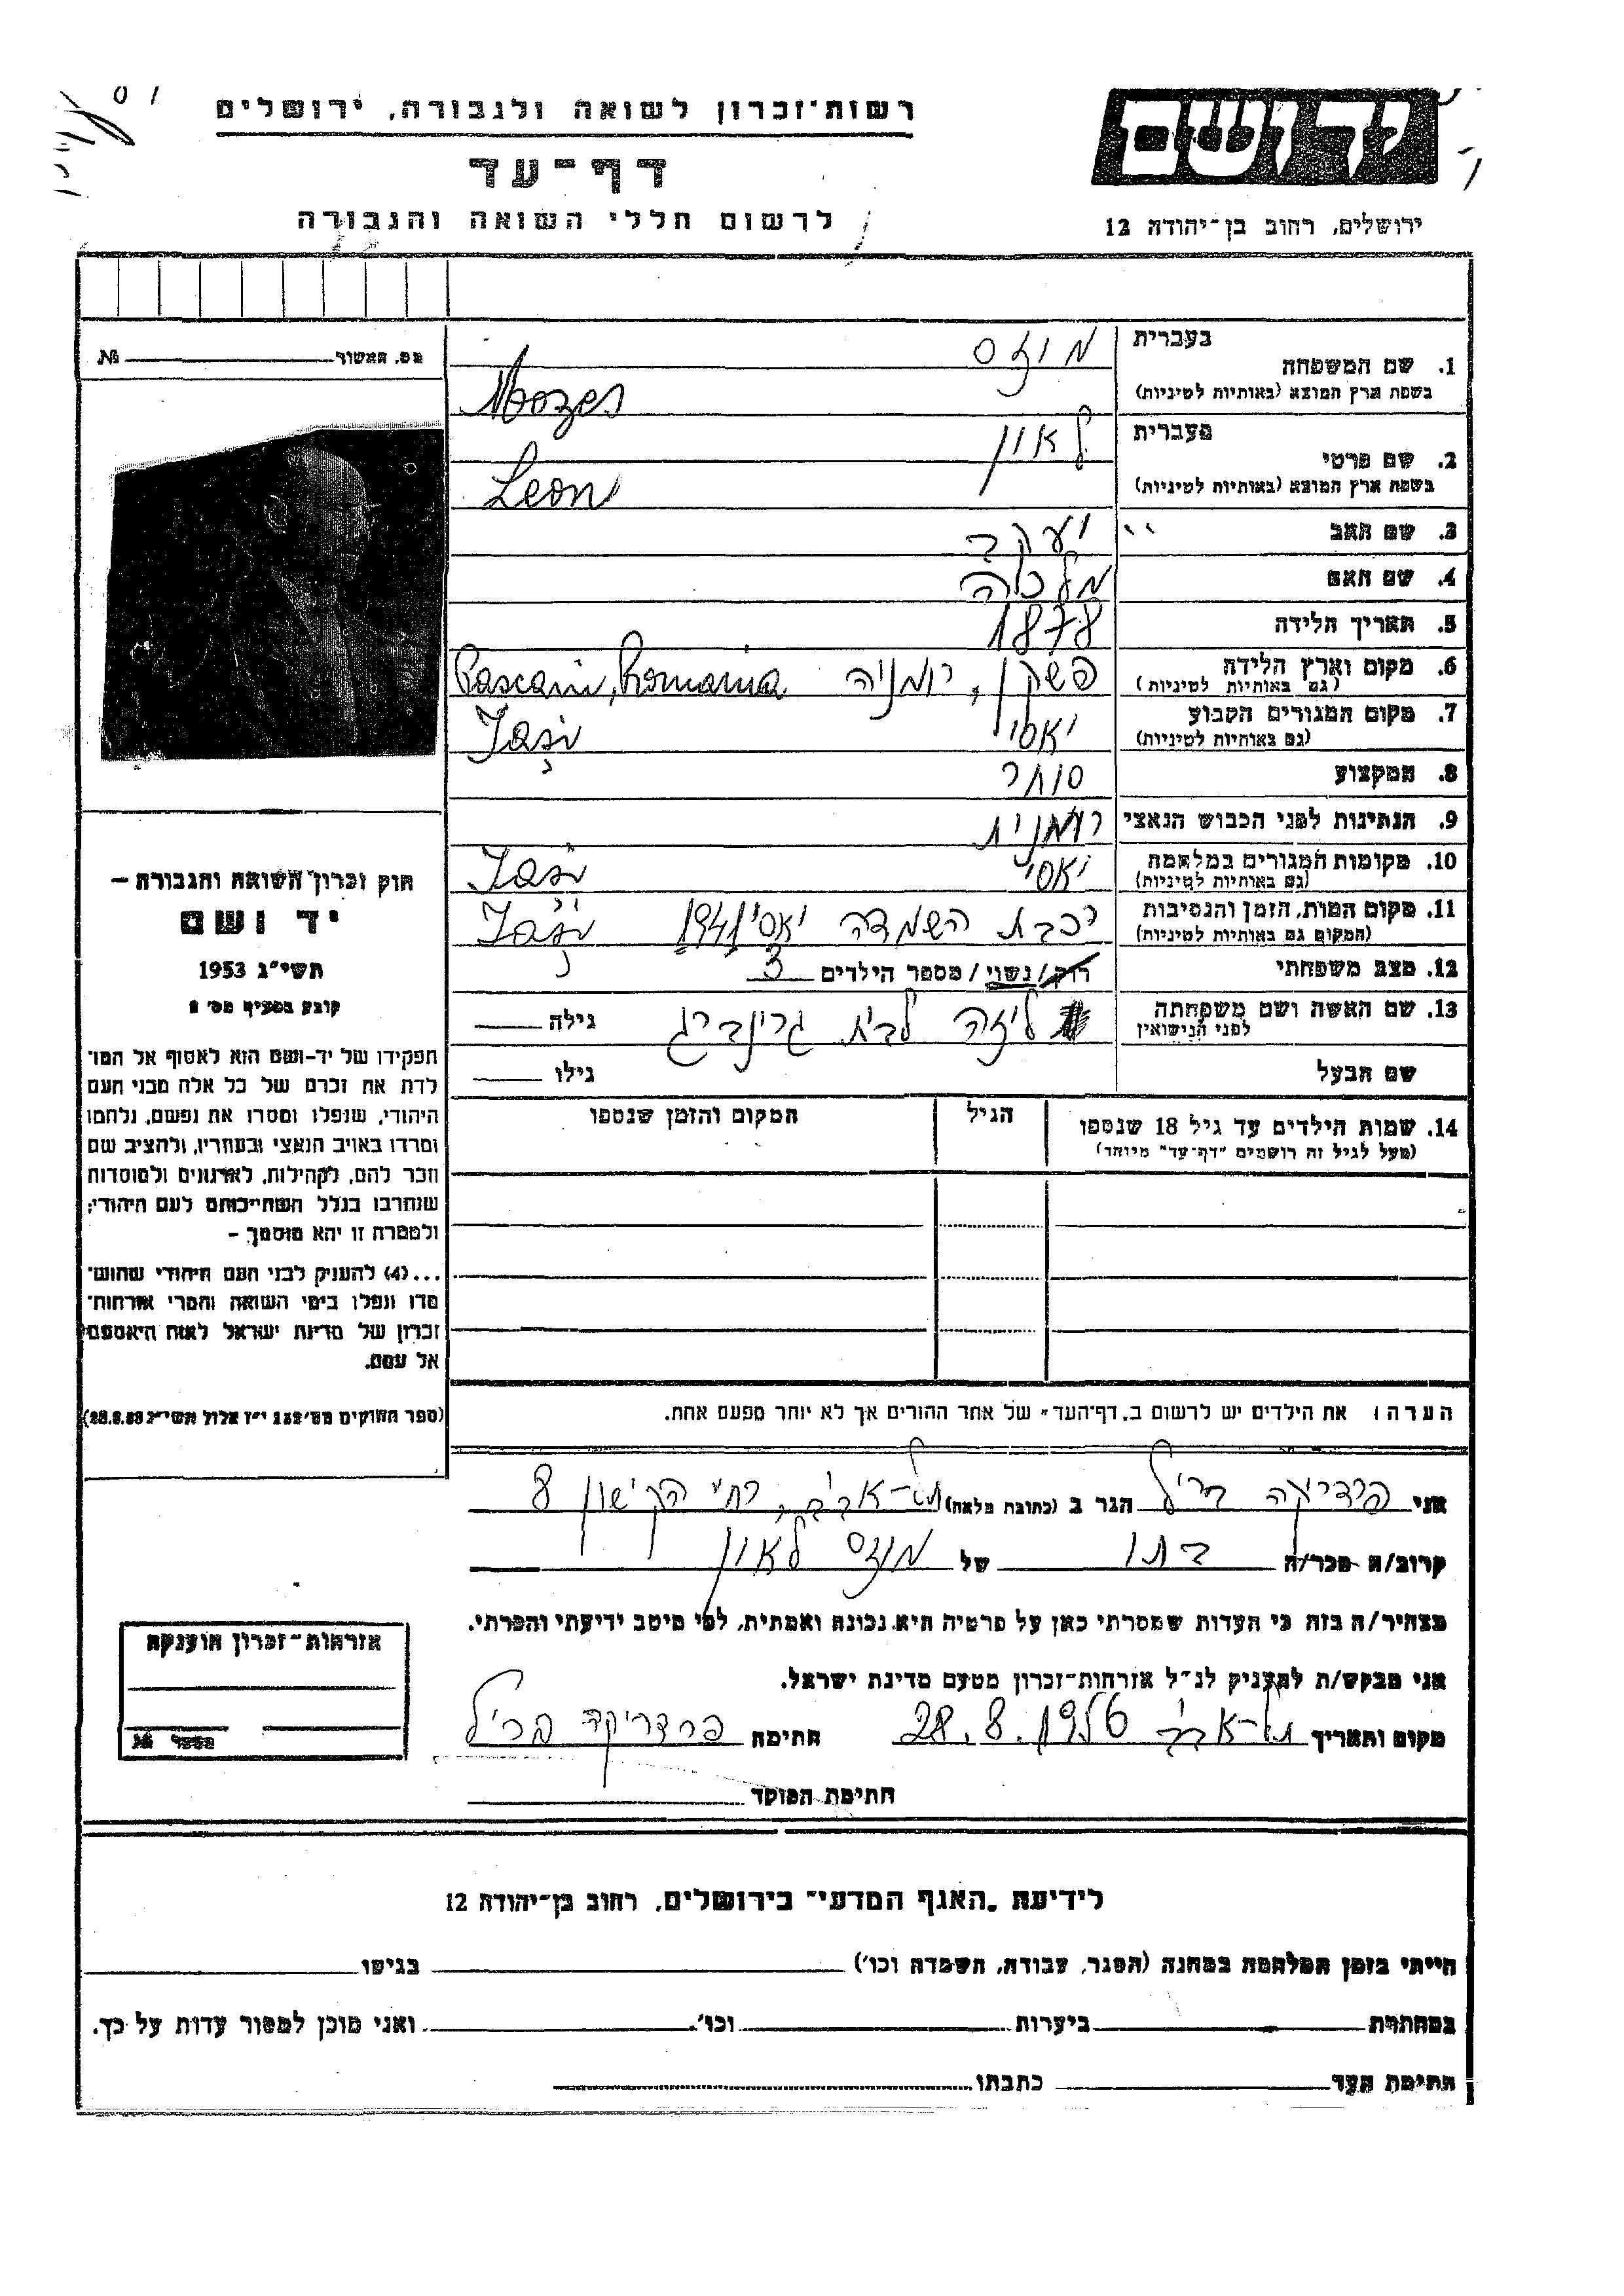 רשות־זכרון לשואה ולגבורה, ירושלים
יד ושם
דף-עד
לרשום חללי השואה והגבורה
ירושלים, רחוב בן־יהודה 12
מס. האשור №
1. שם המשפחה
בעברית מוזס
בשפת ארץ המוצא (באותיות לטיניות) Mozes
2. שם פרטי
בעברית לאון
בשפת ארץ המוצא (באותיות לטיניות) Leon
3. שם האב יעקב
4. שם האם מלכה
5. תאריך הלידה 1878
6. מקום וארץ הלידה פשקן, רומניה Pascani, Romania
(גם באותיות לטיניות)
7. מקום המגורים הקבוע יאסי Iași
(גם באותיות לטיניות)
8. המקצוע סוחר
9. הנתינות לפני הכבוש הנאצי רומנית
10. מקומות המגורים במלחמה יאסי Iași
(גם באותיות לטיניות)
11. מקום המות, הזמן והנסיבות רכבת השמדה יאסי 1941 Iași
(המקום גם באותיות לטיניות)
12. מצב משפחתי רוק/נשוי/ מספר הילדים 3
13. שם האשה ושם משפחתה ליזה לבית גרינברג גילה
לפני הנישואין
שם הבעל גילו
14. שמות הילדים עד גיל 18 שנספו הגיל המקום והזמן שנספו
(מעל לגיל זה רושמים "דף־עד" מיוחד)
הערה: את הילדים יש לרשום ב„דף־העד" של אחד ההורים אך לא יותר מפעם אחת.
חוק זכרון השואה והגבורה –
יד ושם
תשי"ג 1953
קובע בסעיף מס' 2
תפקידו של יד-ושם הוא לאסוף אל המו־
לדת את זכרם של כל אלה מבני העם
היהודי, שנפלו ומסרו את נפשם, נלחמו
ומרדו באויב הנאצי ובעוזריו, ולהציב שם
וזכר להם, לקהילות, לארגונים ולמוסדות
שנחרבו בגלל השתייכותם לעם היהודי;
ולמטרה זו יהא מוסמך –
...(4) להעניק לבני העם היהודי שהוש־
מדו ונפלו בימי השואה והמרי אזרחות־
זכרון של מדינת ישראל לאות היאספם
אל עמם.
(ספר החוקים מס' 132 י"ז אלול תשי"ג 28.8.53)
אני פרדריקה בריל הגר ב (כתובת מלאה) תל-אביב, רח' הקישון 8
קרוב/ה מכר/ה בתו של מוזס לאון
מצהיר/ה בזה כי העדות שמסרתי כאן על פרטיה היא נכונה ואמתית, לפי מיטב ידיעתי והכרתי.
אני מבקש/ת להעניק לנ"ל אזרחות־זכרון מטעם מדינת ישראל.
מקום ותאריך תל-אביב 28.8.1956 חתימה פרדריקה בריל
חתימת הפוקד
אזרחות־זכרון הוענקה
מספר №
לידיעת „האגף המדעי" בירושלים, רחוב בן־יהודה 12
הייתי בזמן המלחמה במחנה (הסגר, עבודה, השמדה וכו') בגיטו
במחתרת ביערות וכו'. ואני מוכן למסור עדות על כך.
חתימת העד כתבתו